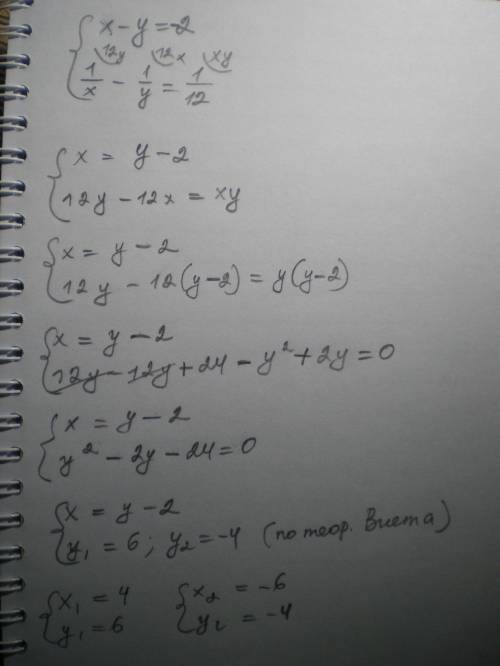 { x - y = -2
12y 12x xy
1/x - 1/y = 1/12
{ x = y - 2
12y - 12x = xy
{ x = y - 2
12y - 12(y-2) = y(y-2)
{ x = y - 2
12y - 12y + 24 - y² + 2y = 0
{ x = y - 2
y² - 2y - 24 = 0
{ x = y - 2
y₁ = 6; y₂ = -4 (по теор. Виета)
{ x₁ = 4 { x₂ = -6
y₁ = 6 y₂ = -4